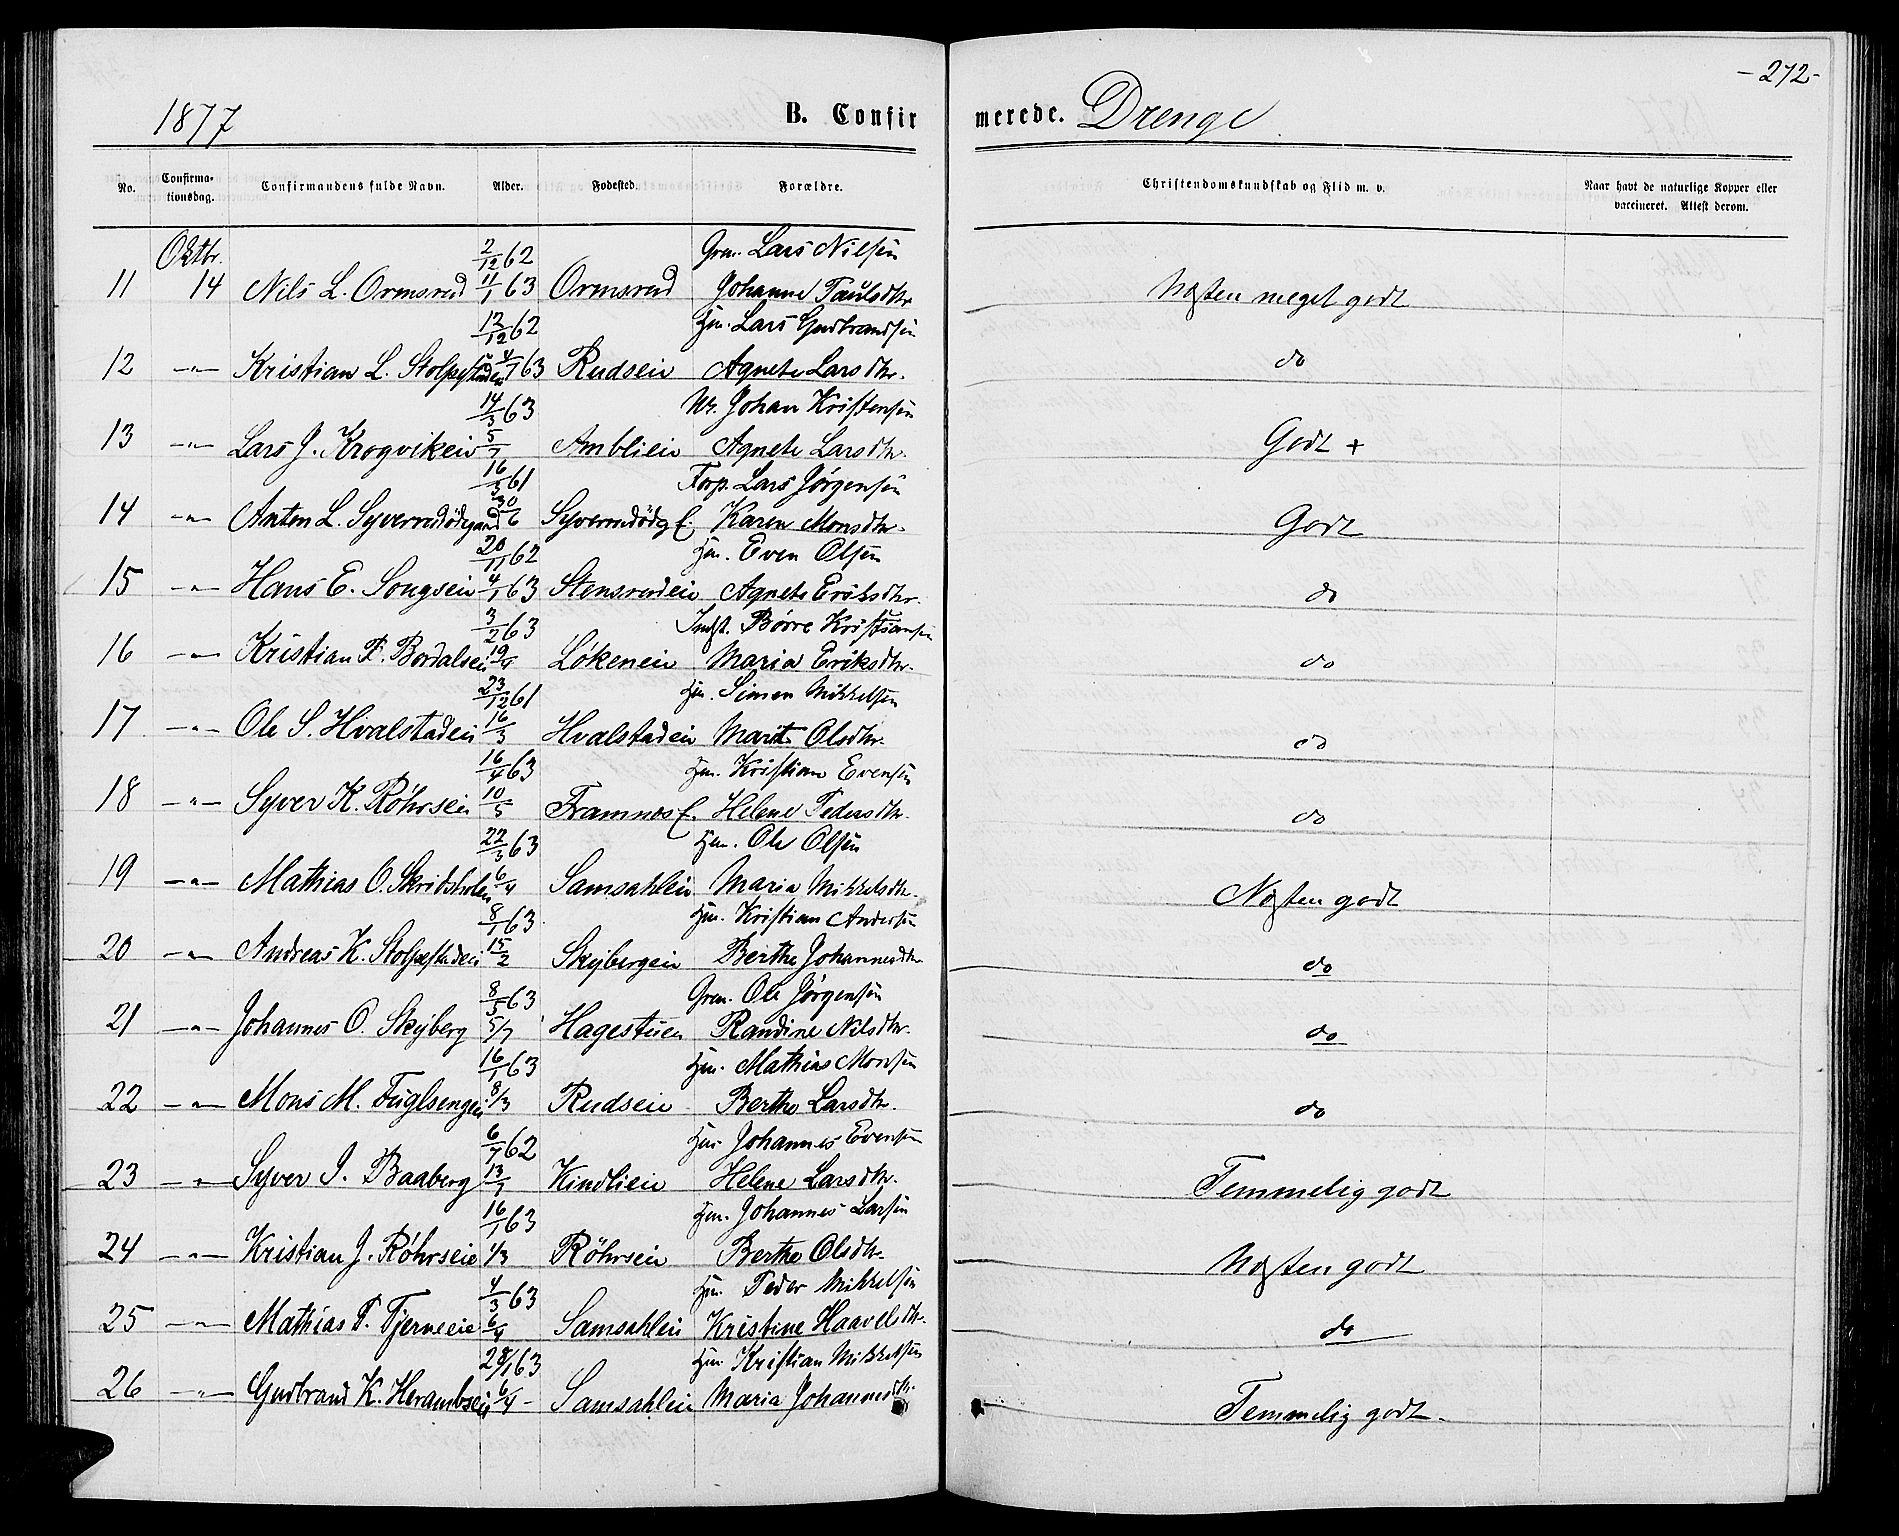 -272-
1877 B. Confirmerede. Drenge
No. Confirmationsdag. Confirmandens fulde Navn. Alder. Fødested. Forældre. Christendomskundskab og Flid m. v. Naar havt de naturlige Kopper eller vaccineret. Attest derom.
Oktbr. 2/12 62 Grm. Lars Nilsen
11 14 Nils L. Ormsrud 11/1 63 Ormsrud Johanne Paulsdtr Næsten meget godt
12/12 62 Hm. Lars Gudbrandsen
12 -"- Kristian L. Stolpestadeie 4/1 63 Rudseie Agnete Larsdtr. do
14/3 63 Johan Kristensen
13 -"- Lars J. Krogvikeie 5/7 Amblieie Agnete Larsdtr. Godt +
16/3 61 Forp. Lars Jørgensen
14 -"- Anten L. Syverrudødegaard 30/6 Syverrudødg E. Karen Monsdtr. Godt
20/11 62 Hm. Even Olsen
15 -"- Hans E. Songseie 4/1 63 Stensrudeie Agnete Eriksdtr. do
3/2 63 Indst. Børre Kristiansen
16 -"- Kristian B. Bordalseie 19/4 Løkeneie Maria Eriksdtr. do
23/12 61 Hm. Simen Mikkelsen
17 -"- Ole S. Hvalstadeie 16/3 Hvalstadeie Marit Olsdtr. do
16/4 63 Hm. Kristian Evensen
18 -"- Syver K. Röhrseie 10/5 Framnes E. Helene Pedersdtr. do
22/3 63 Hm. Ole Olsen
19 -"- Mathias O. Skridsholeie 6/4 Samsahleie Maria Mikkelsdtr. Næsten godt
8/1 63 Hm. Kristian Andersen
20 -"- Andreas K. Stolpestadeie 15/2 Skybergeie Berthe Johannesdtr do
8/5 63 Grm. Ole Jørgensen
21 -"- Johannes O. Skyberg 5/7 Hagestuen Randine Nilsdtr. do
16/1 63 Hm. Mathias Monsen
22 -"- Mons M. Fuglsengeie 8/3 Rudseie Berthe Larsdtr. do
6/7 62 Hm. Johannes Evensen
23 -"- Syver J. Baaberg 13/7 Kindlieie Helene Larsdtr. Temmelig godt
16/1 63 Hm. Johannes Larsen
24 -"- Kristian J. Röhrseie 1/3 Röhrseie Berthe Olsdtr. Næsten godt
4/3 63 Hm. Peder Mikkelsen
25 -"- Mathias P. Tjerneeie 6/4 Samsahleie Kristine Haavelsdtr. do
28/1 63 Hm. Kristian Mikkelsen
26 -"- Gudbrand K. Herambseie 6/4 - Samsahleie Maria Johannesdtr. Temmelig godt.